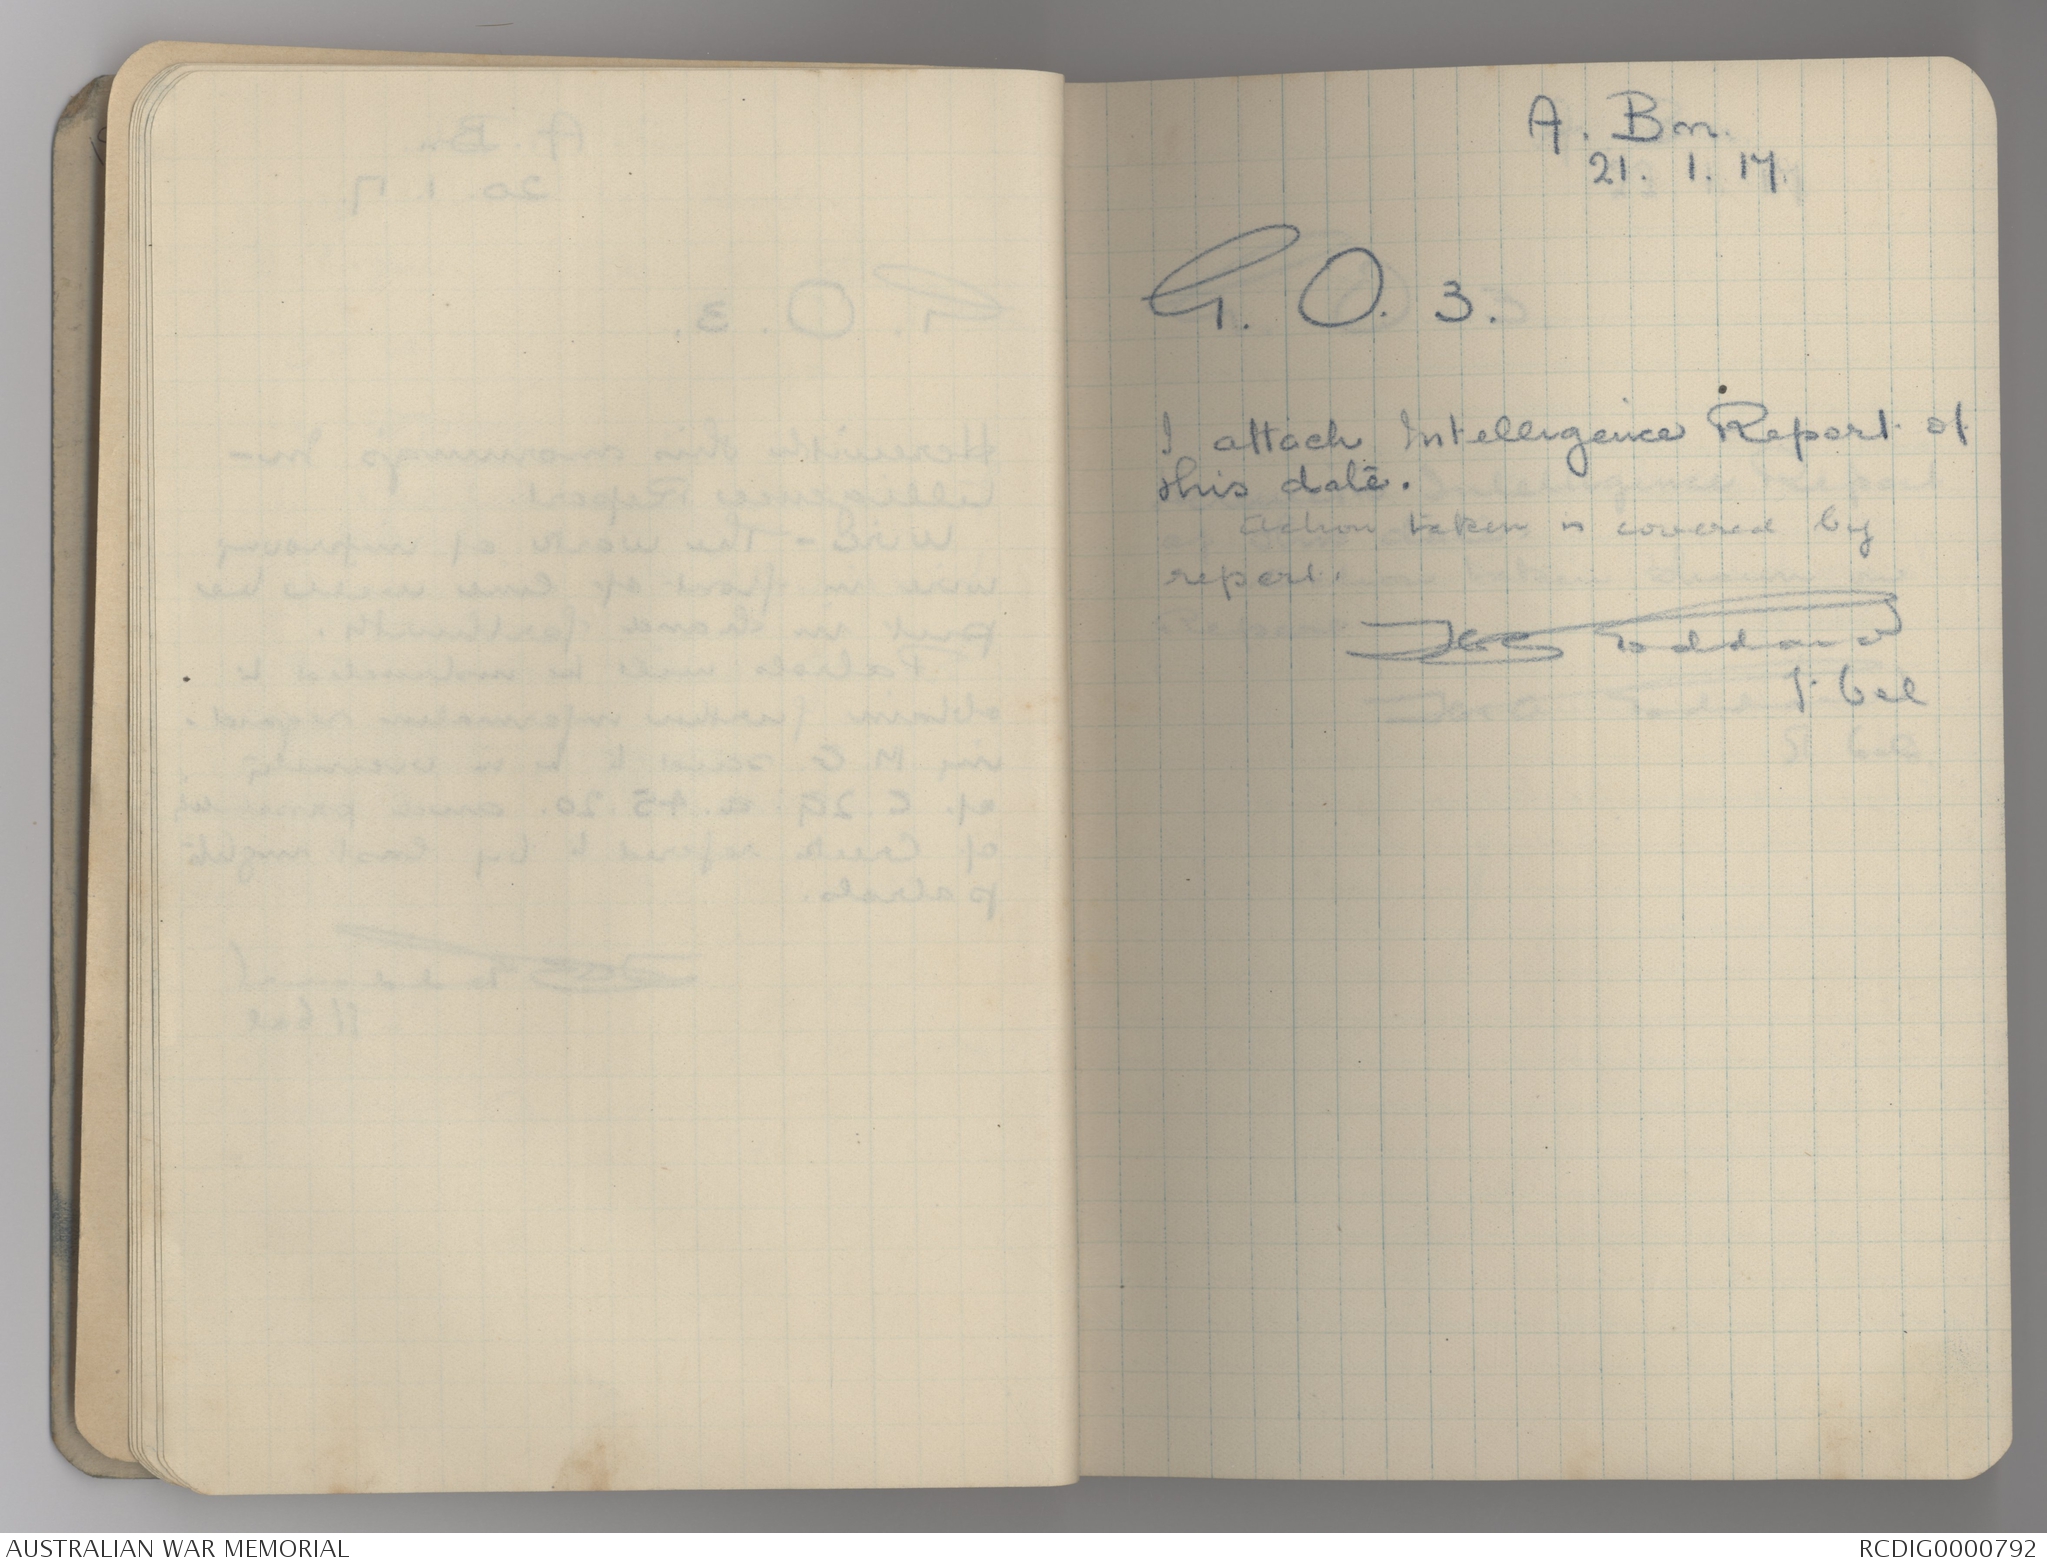 A. Bn.
21. 1. 17.
G. O. 3.
I attach Intelligence Report of
this date.
Action taken is covered by
report.
Goddard
Lt Col
AUSTRALIAN WAR MEMORIAL
RCDIG0000792